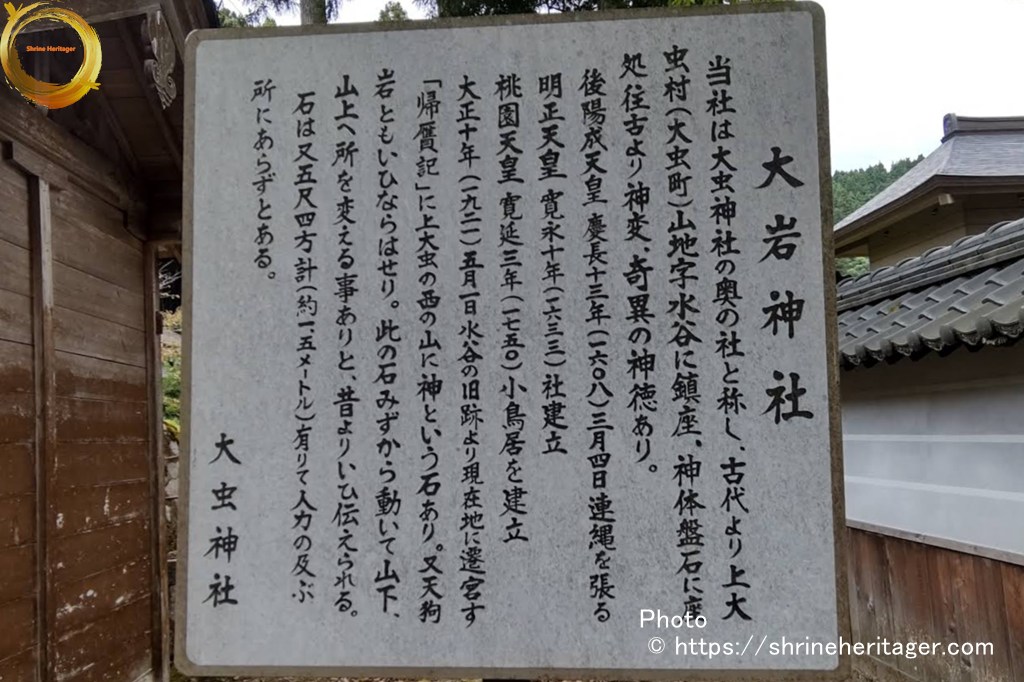 Shrine Heritager
大岩神社
当社は大虫神社の奥の社と称し、古代より上大
虫村(大虫町)山地字水谷に鎮座、神体盤石に座
処往古より神変、奇異の神徳あり。
後陽成天皇 慶長十三年(一六〇八)三月四日連縄を張る
明正天皇 寛永十年(一六三三)社建立
桃園天皇 寛延三年(一七五〇)小鳥居を建立
大正十年(一九二一)五月一日水谷の旧跡より現在地に遷宮す
「帰鴈記」に上大虫の西の山に神という石あり。又天狗
岩ともいひならはせり。此の石みずから動いて山下、
山上へ所を変える事ありと、昔よりいひ伝えられる。
石は又五尺四方計(約一.五メートル)有りて人力の及ぶ
所にあらずとある。
大虫神社
Photo
© https://shrineheritager.com/